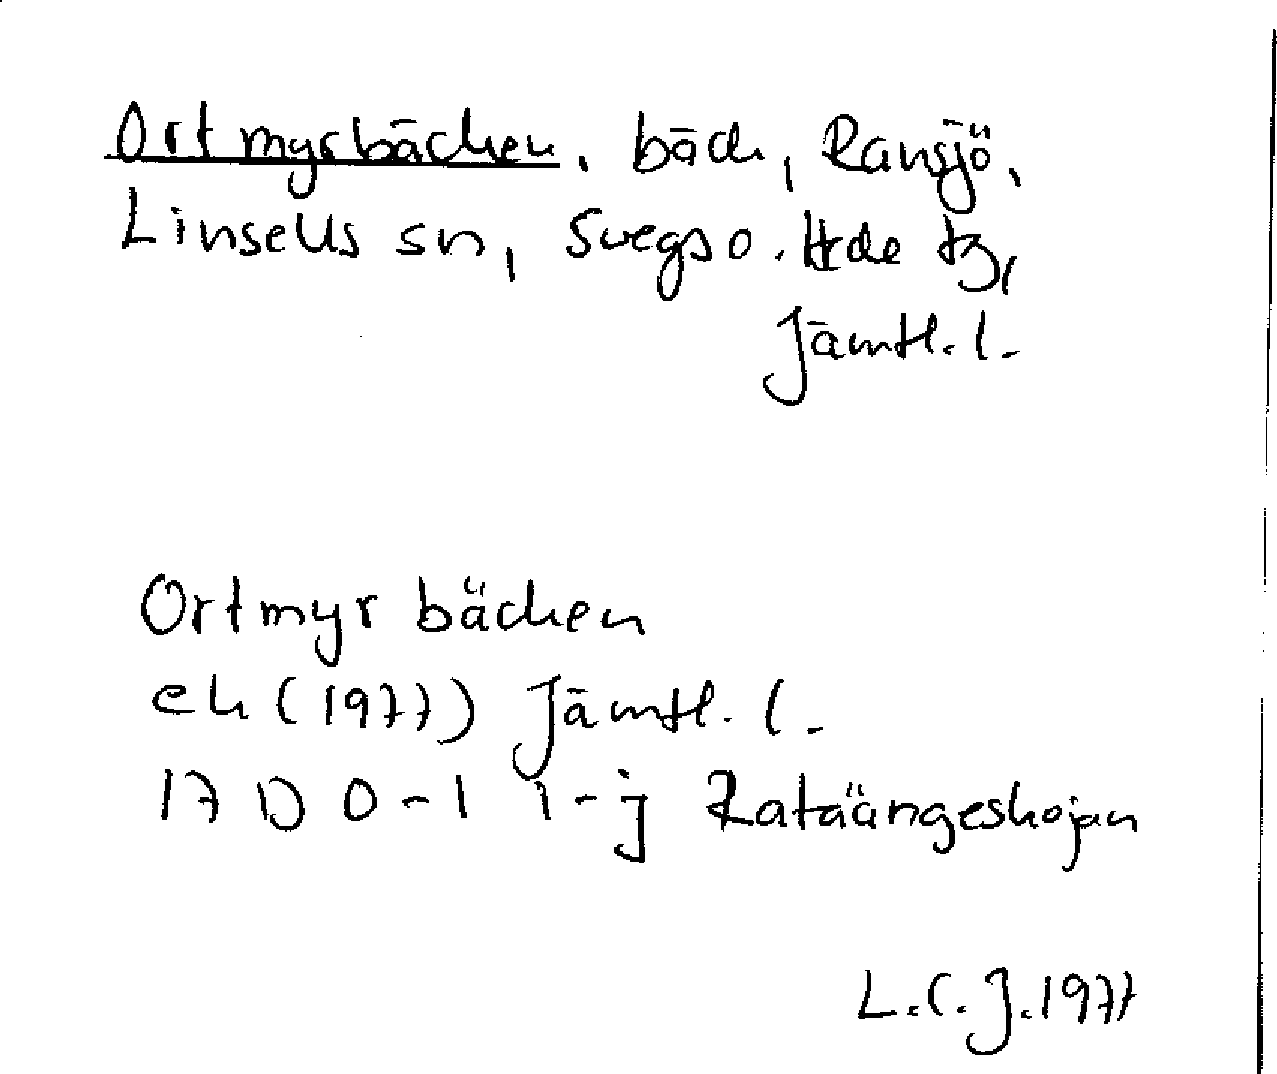 Ortmyrbäcken, bäck, Ransjö,
Linsells sn, Svegs o. Hede tg,
Jämtl. l.
Ortmyrbäcken
ek (1977) Jämtl. l.
17 D 0-1 i-j Rataängeskojan
L.C.J. 1977